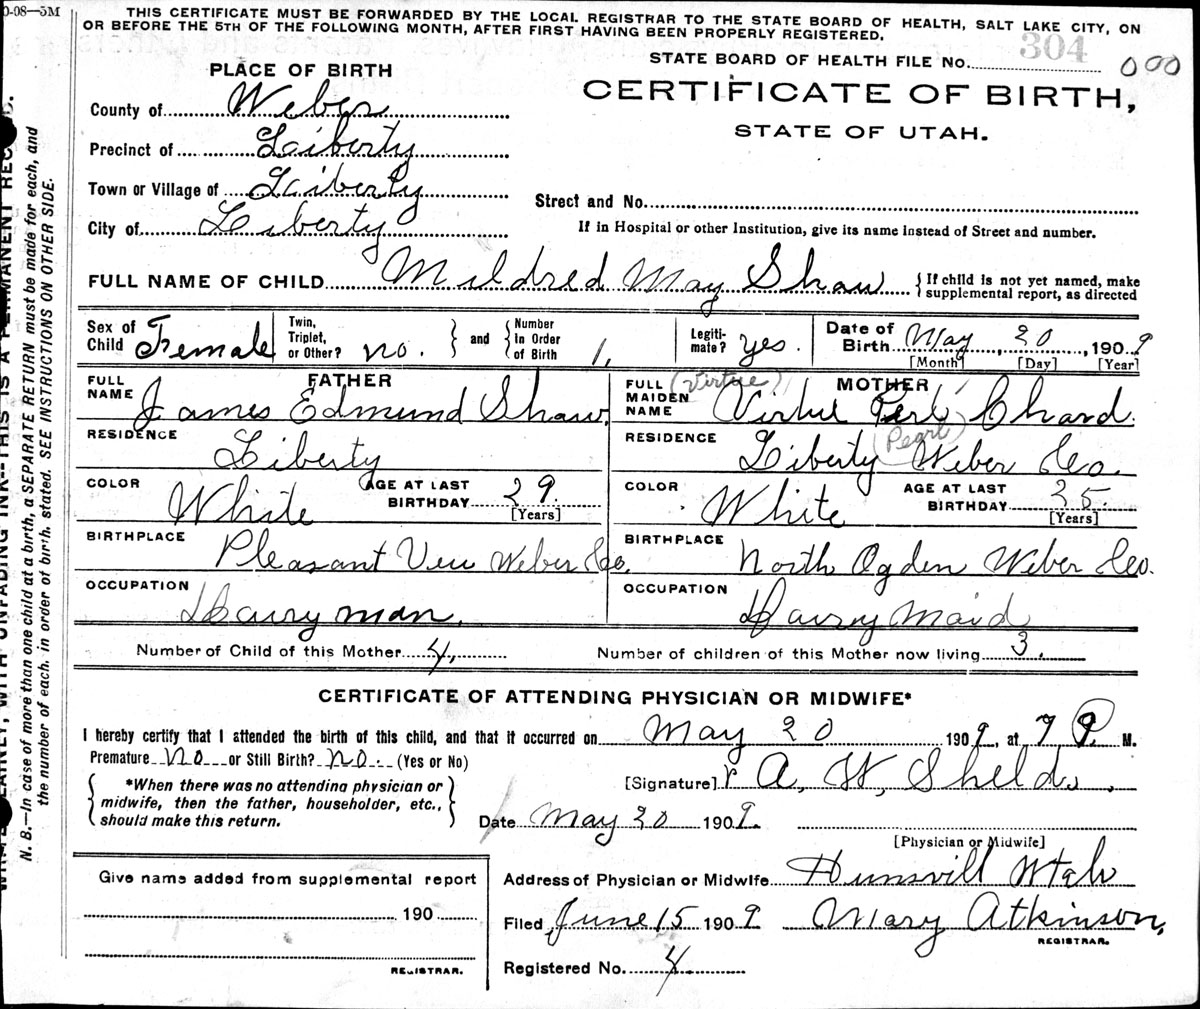 0-08—5M
THIS CERTIFICATE MUST BE FORWARDED BY THE LOCAL REGISTRAR TO THE STATE BOARD OF HEALTH, SALT LAKE CITY, ON
OR BEFORE THE 5TH OF THE FOLLOWING MONTH, AFTER FIRST HAVING BEEN PROPERLY REGISTERED.
304
STATE BOARD OF HEALTH FILE No. 000
PLACE OF BIRTH
CERTIFICATE OF BIRTH,
STATE OF UTAH.
County of Weber
Precinct of Liberty
Town or Village of Liberty
City of Liberty
Street and No.
If in Hospital or other Institution, give its name instead of Street and number.
FULL NAME OF CHILD Mildred May Shaw { If child is not yet named, make
supplemental report, as directed
Sex of Child Female
Twin, Triplet, or Other? no. } and { Number in Order of Birth 1,
Legiti-mate? yes.
Date of Birth May, 20, 1909
[Month] [Day] [Year]
FATHER
FULL NAME James Edmund Shaw,
RESIDENCE Liberty
COLOR White AGE AT LAST BIRTHDAY 29.
[Years]
BIRTHPLACE Pleasant View Weber Co.
OCCUPATION Dairy man.
MOTHER
(Virtue)
FULL MAIDEN NAME Virtue Perl Chard.
(Pearl)
RESIDENCE Liberty Weber Co.
COLOR White AGE AT LAST BIRTHDAY 25.
[Years]
BIRTHPLACE North Ogden Weber Co.
OCCUPATION Dairy Maid
Number of Child of this Mother 4, Number of children of this Mother now living 3.
CERTIFICATE OF ATTENDING PHYSICIAN OR MIDWIFE*
I hereby certify that I attended the birth of this child, and that it occurred on May 20 1909, at 7 P. M.
Premature No or Still Birth? No. (Yes or No)
{ *When there was no attending physician or
midwife, then the father, householder, etc.,
should make this return. }
[Signature] A. W. Sheld
Date May 20 1909.
[Physician or Midwife]
Address of Physician or Midwife Hunsvill Utah
Filed June 15 1909 Mary Atkinson,
REGISTRAR.
Registered No. 4
Give name added from supplemental report
190
REGISTRAR.
WITH UNFADING INK--THIS IS A PERMANENT REC
N. B.—In case of more than one child at a birth, a SEPARATE RETURN must be made for each, and
the number of each, in order of birth, stated. SEE INSTRUCTIONS ON OTHER SIDE.